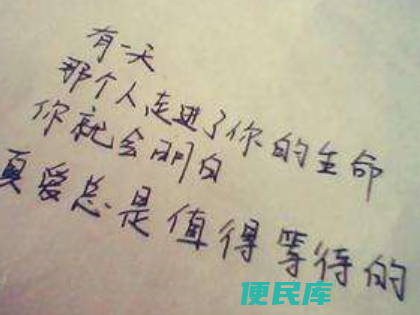 有一天
那个人,走进了你的生命
你就会明白
真爱总是值得等待的
便民库